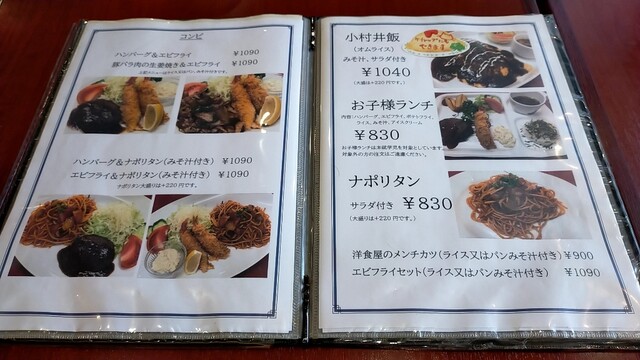 コンビ
ハンバーグ＆エビフライ ￥1090
豚バラ肉の生姜焼き＆エビフライ ￥1090
ハンバーグ＆ナポリタン(みそ汁付き) ￥1090
エビフライ＆ナポリタン(みそ汁付き) ￥1090
ナポリタン大盛りは+220円です。
小村井飯
(オムライス)
みそ汁、サラダ付き
￥1040
(大盛は+220円です。)
お子様ランチ
内容：ハンバーグ、エビフライ、ポテトフライ、
ライス、みそ汁、アイスクリーム
￥830
お子様ランチは未就学児を対象としています。
対象外の方の注文はご遠慮ください。
ナポリタン
サラダ付き ￥830
(大盛りは+220円です。)
洋食屋のメンチカツ(ライス又はパンみそ汁付) ￥900
エビフライセット(ライス又はパンみそ汁付き) ￥1090